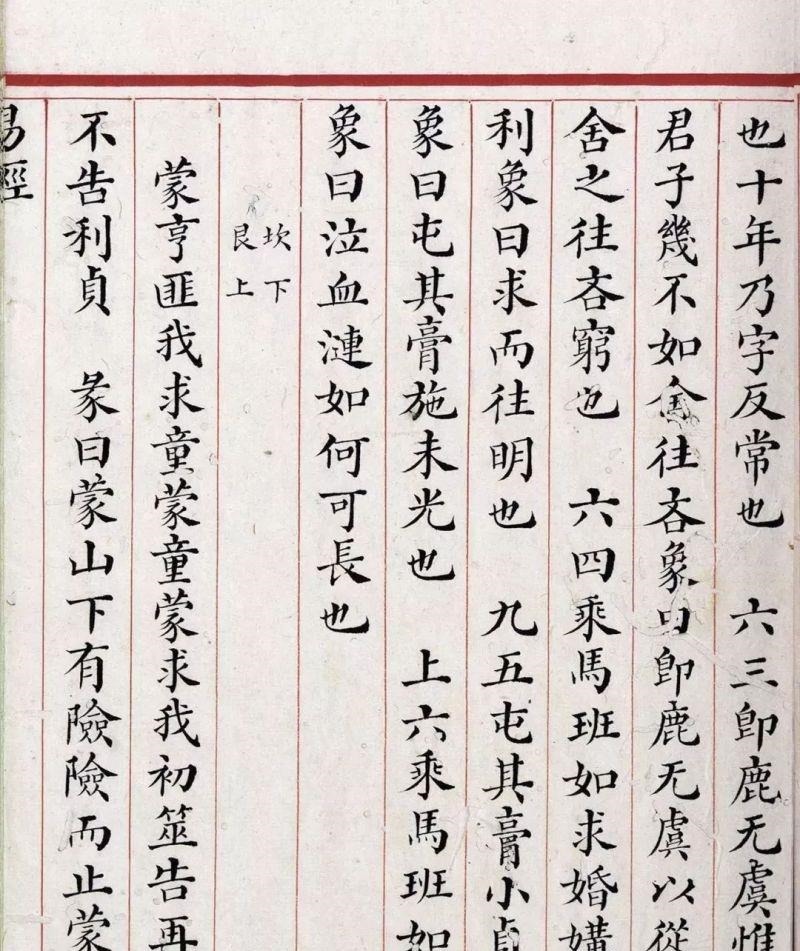 也十年乃字反常也　六三卽鹿无虞惟
君子幾不如舍往吝象曰卽鹿无虞以從
舍之往吝窮也　六四乘馬班如求婚媾
利象曰求而往明也　九五屯其膏小貞
象曰屯其膏施未光也　上六乘馬班如
象曰泣血漣如何可長也
坎下
艮上
蒙亨匪我求童蒙童蒙求我初筮告再
不告利貞　彖曰蒙山下有險險而止蒙
易經